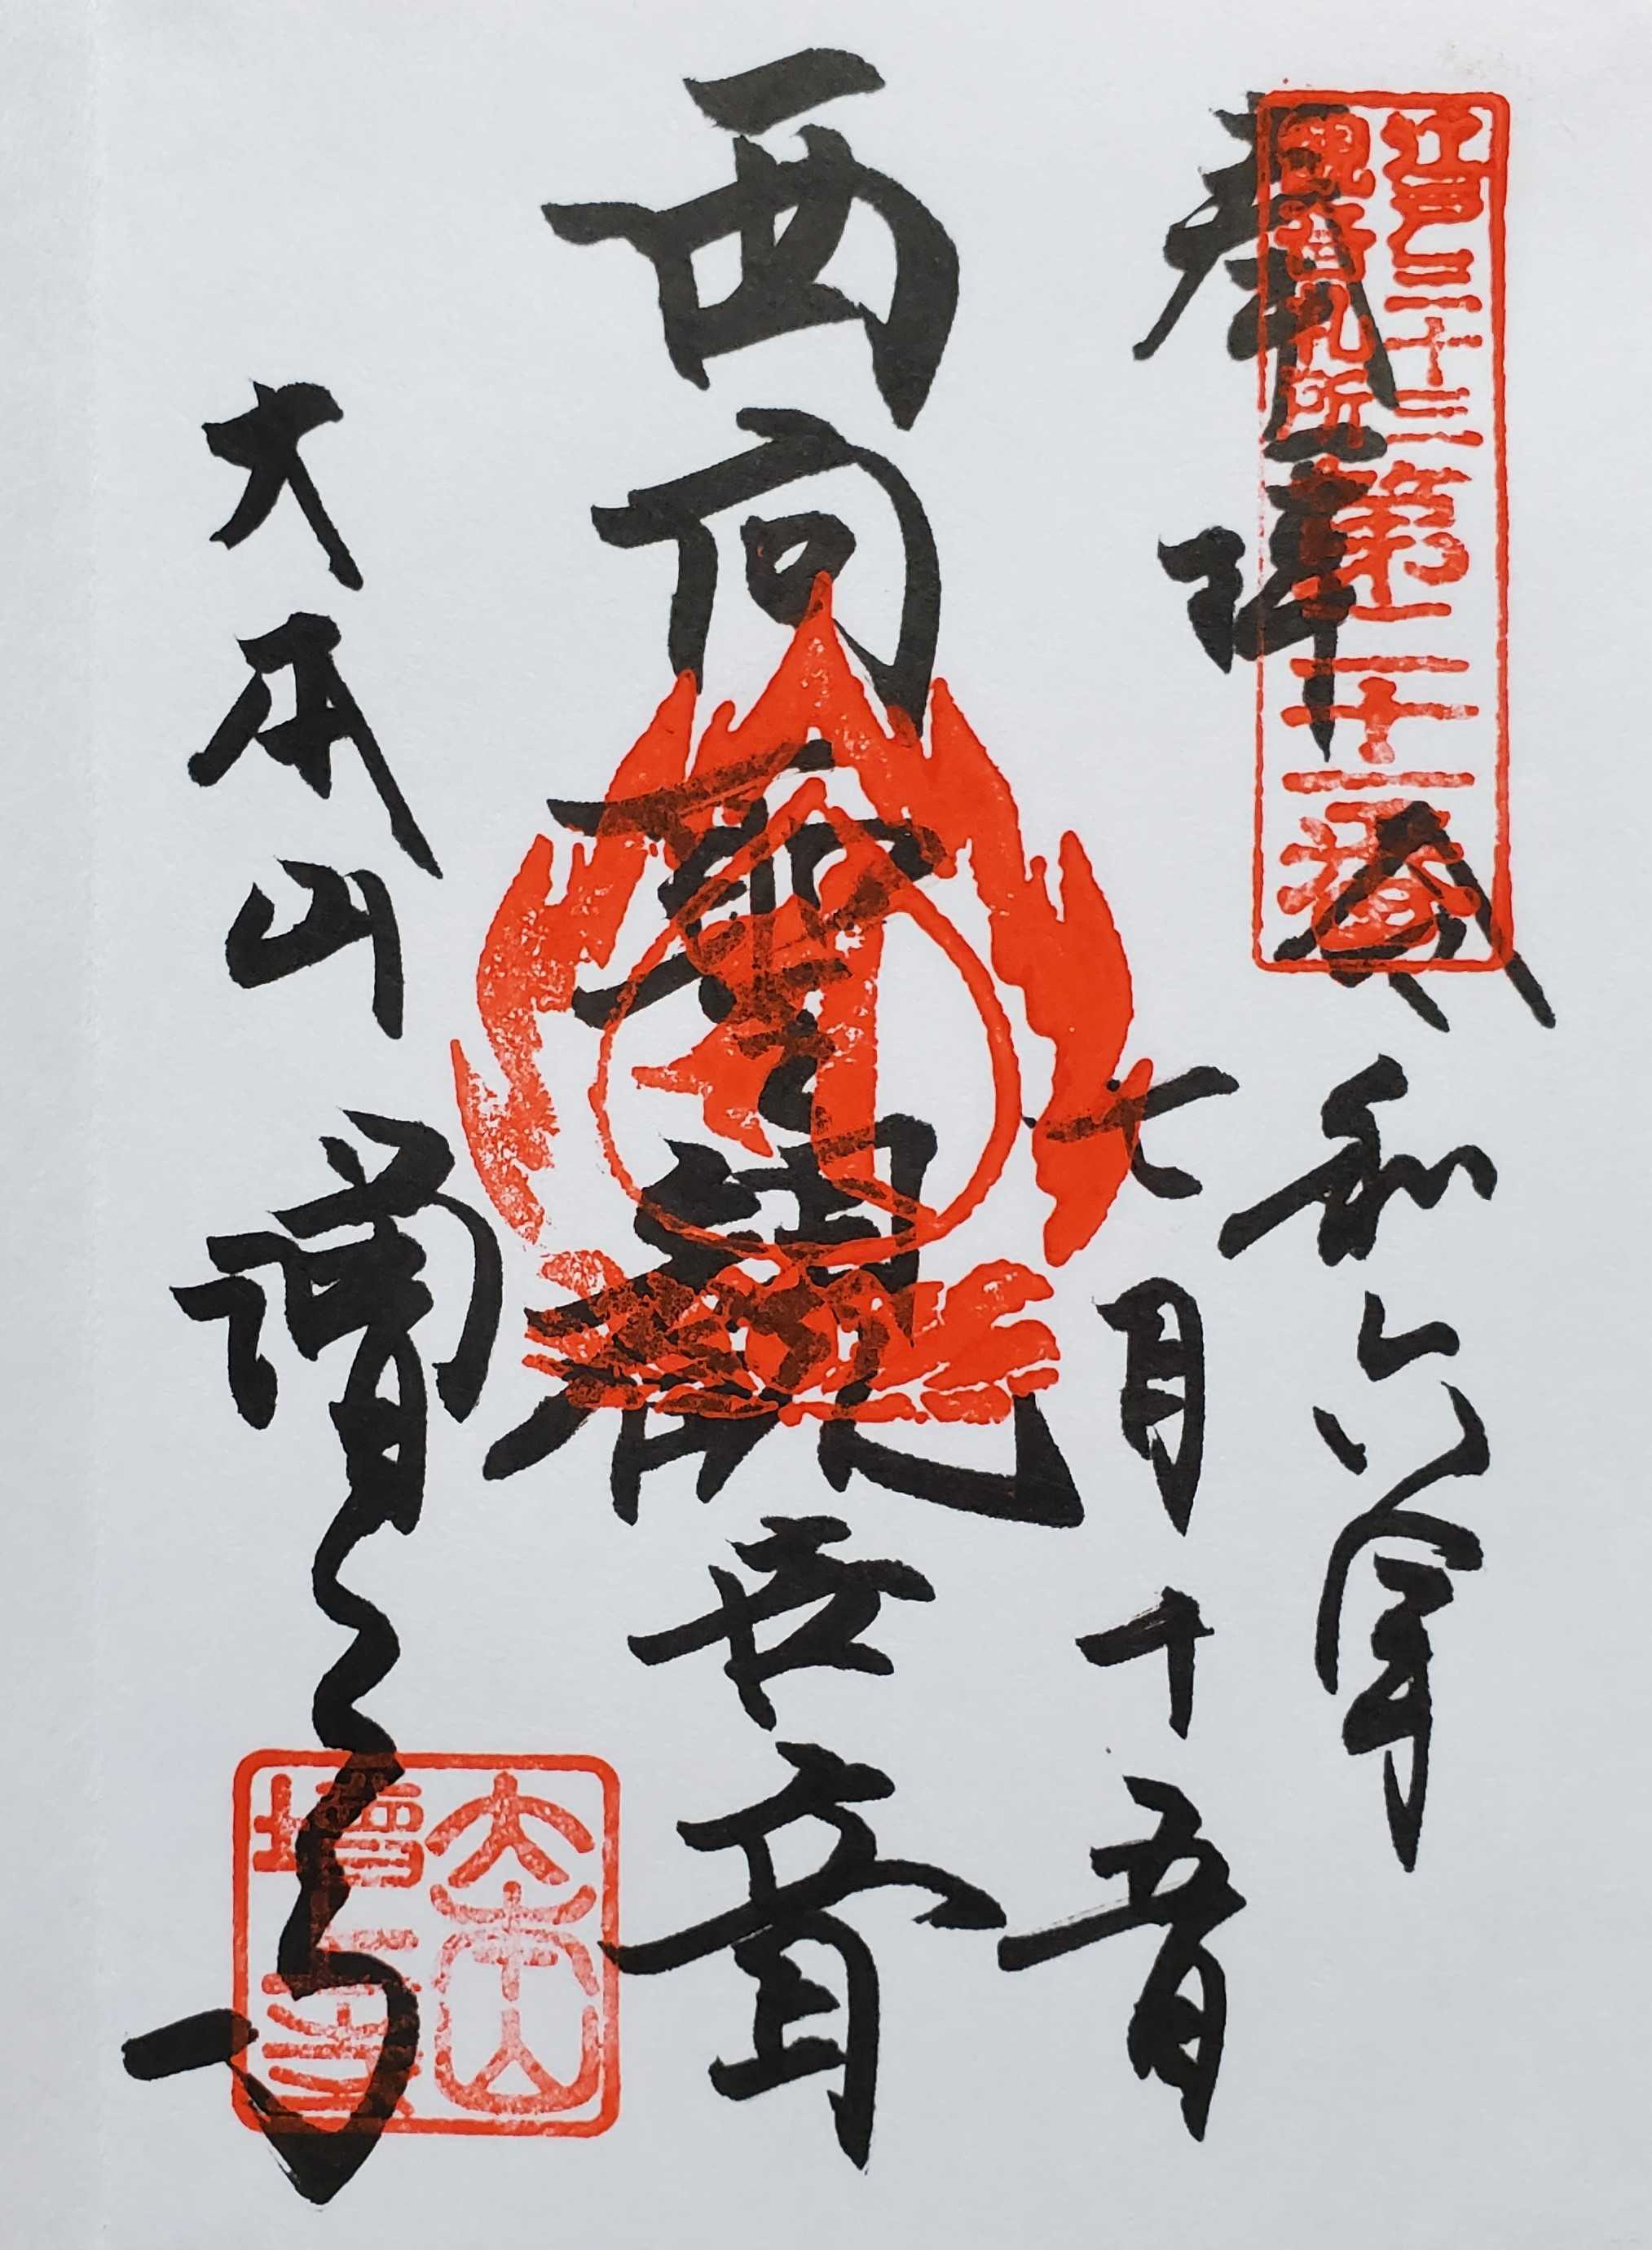 奉拝
江戸三十三
観音札所
第二十一番
令和六年
七月十五日
西向聖観世音
大本山
増上寺
大本山
増上寺